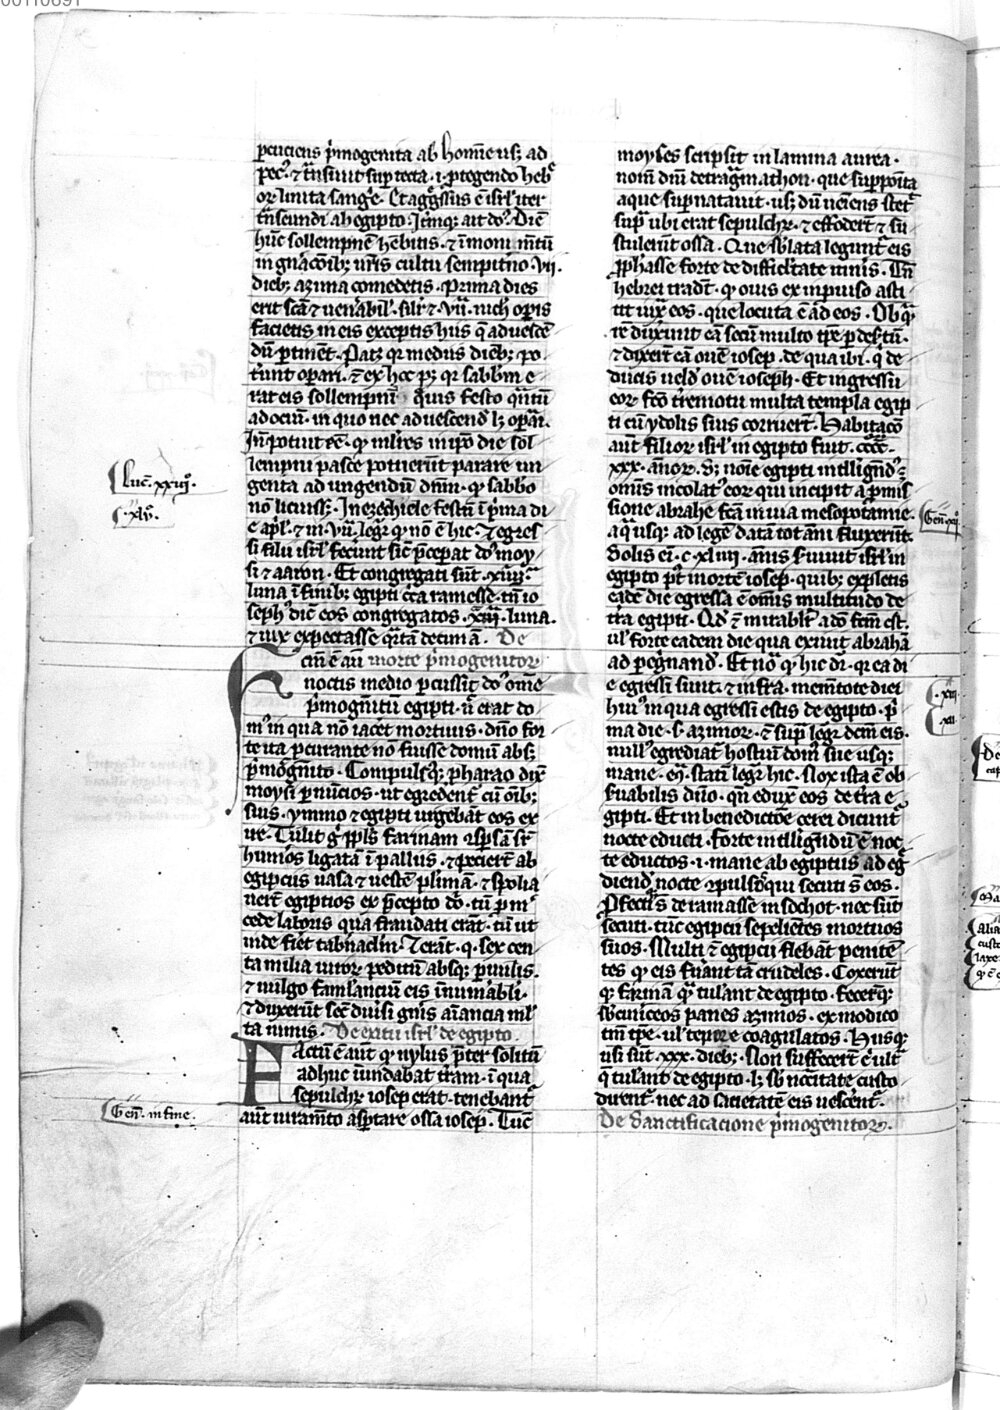 percuciens p̄mogenita ab homīe usꝫ ad
pecꝰ ⁊ t̄nsiuit sup tecta .i. ptegendo hebᵒ
oꝝ linita sangͥe. Et aggͤssus ē isrl̄ iter
t̄nseundi ab egipto. Itemqꝫ ait dōs. Diē
hūc sollempnē h̄ebitis. ⁊ ī monimētū
in gnāc̄oibꝫ ur̄is cultu sempit̄no .vii.
diebꝫ azima comedetis. Prima dies
erit sc̄a ⁊ uen̄abil̓. silr̄ ⁊ .vii. nich̓ operis
facietis in eis exceptis hiis q̄ ad uescē
dū ꝑtinēt. Patꝫ qr̄ mediis diebꝫ po
t̄unt opari. ⁊ ex hoc pꝫ qr̄ sabbm̄ e
rat eis sollempniꝰ quis festo quātū
ad ociū. in quo nec ad uescend̓ lꝫ opari.
In̄ potuit eē. ꝙ mlr̄es in ipo die sol
lempni pasce potuerūt parare un
genta ad ungendū dnm̄. ꝙ sabbo
nō licuissꝫ. In ezechiele festū ī p̄ma di
e apl̓. ⁊ in .vii. legͥr qͦ nō ē hic. ⁊ egres
si filii isrl̄ fecunt sic̄ p̄cepat dōs moy
si ⁊ aaron. Et congregati sūt .xiiii.ᵃ
luna ī finibꝫ egipti cͣca ramesse. tn̄ io
sephꝰ dic̄ eos congregatos .xiii. luna.
⁊ iux expectasse qͣrtā decimā. De
cīa ē aū morte p̄mogenitoꝝ
noctis medio percussit dōs om̄e
p̄mogenitū egipti. ū erat do
mꝰ in qua nō iacēt mortuus. dn̄o for
te ita pcurante nō fuisse domū absꝫ
p̄mogenito. Compulsꝰqꝫ pharao dix̄
moysi p nūcios. ut egredent̄ cū oībꝫ
suis. Ymmo ⁊ egipti urgebāt eos ex
ire. Tulit gͦ ppl̄s farinam ꝯspsā sr̄
humōs ligatā ī palliis. ⁊ pecierūt ab
egipciis uasa ⁊ uestē plimā. ⁊ spolia
uerūt egiptios ex p̄cepto dō. tū p m̄
cede laboris qua fraudati erāt. tū ut
inde fiēt tabn̄aclm̄. ⁊ erāt .q. sex cen
ta milia uiroꝝ peditū absqꝫ puulis.
⁊ uulgo famlanciū eis īnumabli.
⁊ duxerūt sec̄ diu̓si gn̄is aīancia ml̓
ta nimis. De exitu isrl̄ de egipto.
Factū ē aūt qͦ nylus p̄ter solitū
adhuc iūndabat t̄ram. ī qua
sepulchꝝ iosep erat. tenebant̄
aūt iuramēto aspͦtare ossa iosep. Tūc
Luc̄. xxiij.
.xlv̄.
Gen̄. in fine.
moyses scripsit in lamina aurea.
nom̄ dn̄i detragͣmathon. que suppoīta
aque supnatauit. usꝫ dū ueniens stet̄
supͣ ubi erat sepulchꝝ. ⁊ effoderūt ⁊ su
stulerūt ossa. Que sblata legunt̄ eis
pphasse forte de difficl̓tate itin̄is. Tn̄
hebrei tradūt. ꝙ ouis ex inpuiso asti
tit iux̄ eos. que locuta ē ad eos. Ob qͣ
re duxerūt eā secū multo tp̄e p des̄tū.
⁊ dixerūt eā ouē iosep. de qua ibi. qͥ de
ducis uelud ouē ioseph. Et ingressu
eoꝝ fc̄o tremotu multa templa egip
ti cū ydolis suis corruerūt. Habitac̄o
aūt filioꝝ isrl̄ in egipto fuit. cccc.
xxx. annoꝝ. Sꝫ noīe egipti intlligndꝰ ē
om̄is incolatꝰ eoꝝ qui incipit a p̄mis
sione abrahe fc̄ā in uia mesopotamie.
a qͣ usqꝫ ad legē datā tot anni fluxerūt.
Solis ei. c. xliiii. annis fuiuit isrl̄ in
egipto pt̄ mortē iosep. quibꝫ expletis
eadē die egressa ē om̄is multitudo de
t̄ra egipti. Qd̓ ⁊ mirabilit̄ a dō fcm̄ est.
ul̓ forte eadem die qua exiuit abrahā
ad pegͥnand̓. Et nōͣ ꝙ hic dr̄. qr̄ ea di
e egressi sunt. ⁊ infͣra. mem̄tote diei
huiꝰ in qua egressi estis de egipto. pͥ
ma die .s. azimoꝝ. ⁊ supͣ legͥr dcm̄ eis.
nullꝰ egrediat̄ hostiū domꝰ sue usqꝫ
mane. eiꝰ. stati legͥr hic. Nox ista ē ob
suabilis dn̄o. qn̄ edux̄ eos de t̄ra e
gipti. Et in benedictōe cerei dicunt̄
nocte educti. forte intlligndū ē noc
te eductos .i. mane ab egiptiis ad egͤ
diend̓ nocte ꝯpulsos qui secuti s̄ eos.
Pfectiqꝫ de ramasse in sochot. nec sūt
secuti. tūc egipcii sepeliētes mortuos
suos. Multi ⁊ egipcii flebāt penitē
tes ꝙ eis fuant tā crudeles. Coxerūt
qꝫ farinā qͣ tulant de egipto. feceruntqꝫ
sbciniceos panes azimos. ex modico
tm̄ tp̄e. ul̓ tepore coagulatos. Husqꝫ
usi sūt .xxx. diebꝫ. Non suffecerūt ē ult̄
q̄ tulant de egipto. lꝫ sb nēcitate custo
dirent̄. nec ad sacietatē eis uescent̄.
De Sanctificacione p̄mogenitoꝝ.
Gen̄. xij.
.xiii.
.xii.